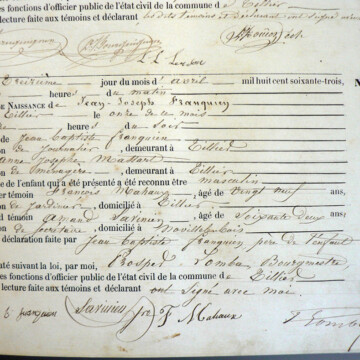 es fonctions d'officier public de l'état civil de la commune de Tillier
lecture faite aux témoins et déclarant
treizième jour du mois d'avril mil huit cent soixante-trois,
heures du matin
DE NAISSANCE DE Jean-Joseph Franquien
Tillier le onze de ce mois
heures du soir
de Jean Baptiste Franquien
on de journalier, demeurant à Tillier
Josephe Massart
on de ménagère, demeurant à Tillier
e de l'enfant qui a été présenté a été reconnu être masculin
er témoin François Mahaux, âgé de vingt neuf ans;
on de jardinier, domicilié à Tillier
d témoin Amand Lavinius, âgé de soixante deux ans;
on de secrétaire, domicilié à Noville les Bois
déclaration faite par Jean Baptiste Franquien, père de l'enfant
té suivant la loi, par moi, Prosper Bourgmestre,
es fonctions d'officier public de l'état civil de la commune de Tillier
lecture faite aux témoins et déclarant ont signé avec moi.
Lavinius F Mahaux